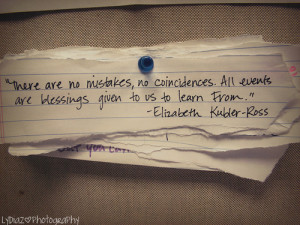 "There are no mistakes, no coincidences. All events
are blessings given to us to learn From."
-Elizabeth Kubler-Ross
you
Lydiaz♡Photography